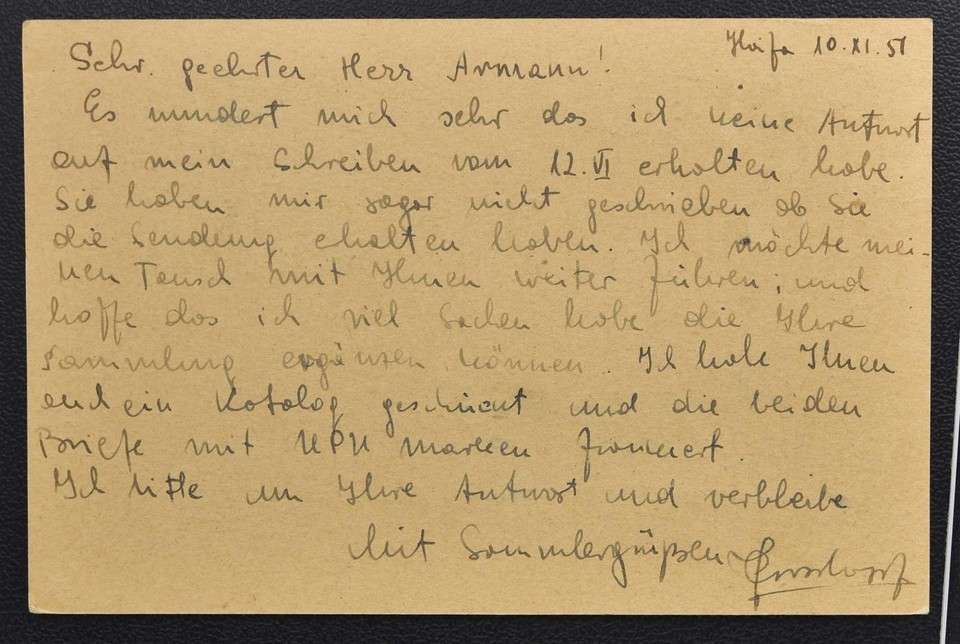 Haifa 10.XI.51
Sehr geehrter Herr Ammann!
Es wundert mich sehr das ich keine Antwort
auf mein Schreiben vom 12.VI erhalten habe.
Sie haben mir sogar nicht geschrieben ob Sie
die Sendung ehalten haben. Ich möchte mei-
nen Tausch mit Ihnen weiter führen; und
hoffe das ich viel Sachen habe die Ihre
Sammlung ergänzen können. Ich habe Ihnen
auch ein Katalog geschickt und die beiden
Briefe mit UPU marken frankiert.
Ich bitte um Ihre Antwort und verbleibe
Mit Sammlergrüßen